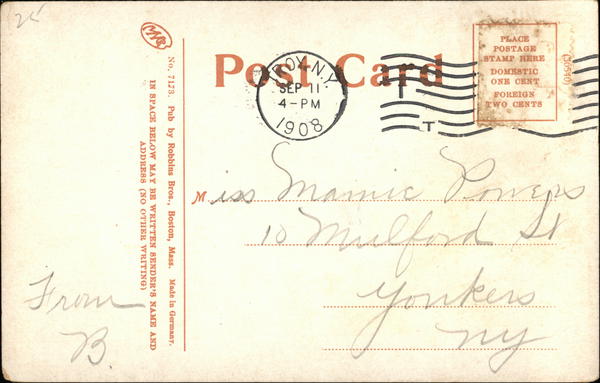 25
Post Card
TROY, N.Y.
SEP 11
4-PM
1908
T
PLACE
POSTAGE
STAMP HERE
DOMESTIC
ONE CENT
FOREIGN
TWO CENTS
No. 7173. Pub by Robbins Bros., Boston, Mass. Made in Germany.
IN SPACE BELOW MAY BE WRITTEN SENDER'S NAME AND
ADDRESS (NO OTHER WRITING)
Miss Mamie Powers
10 Mulford St
Yonkers
NY
From
B.